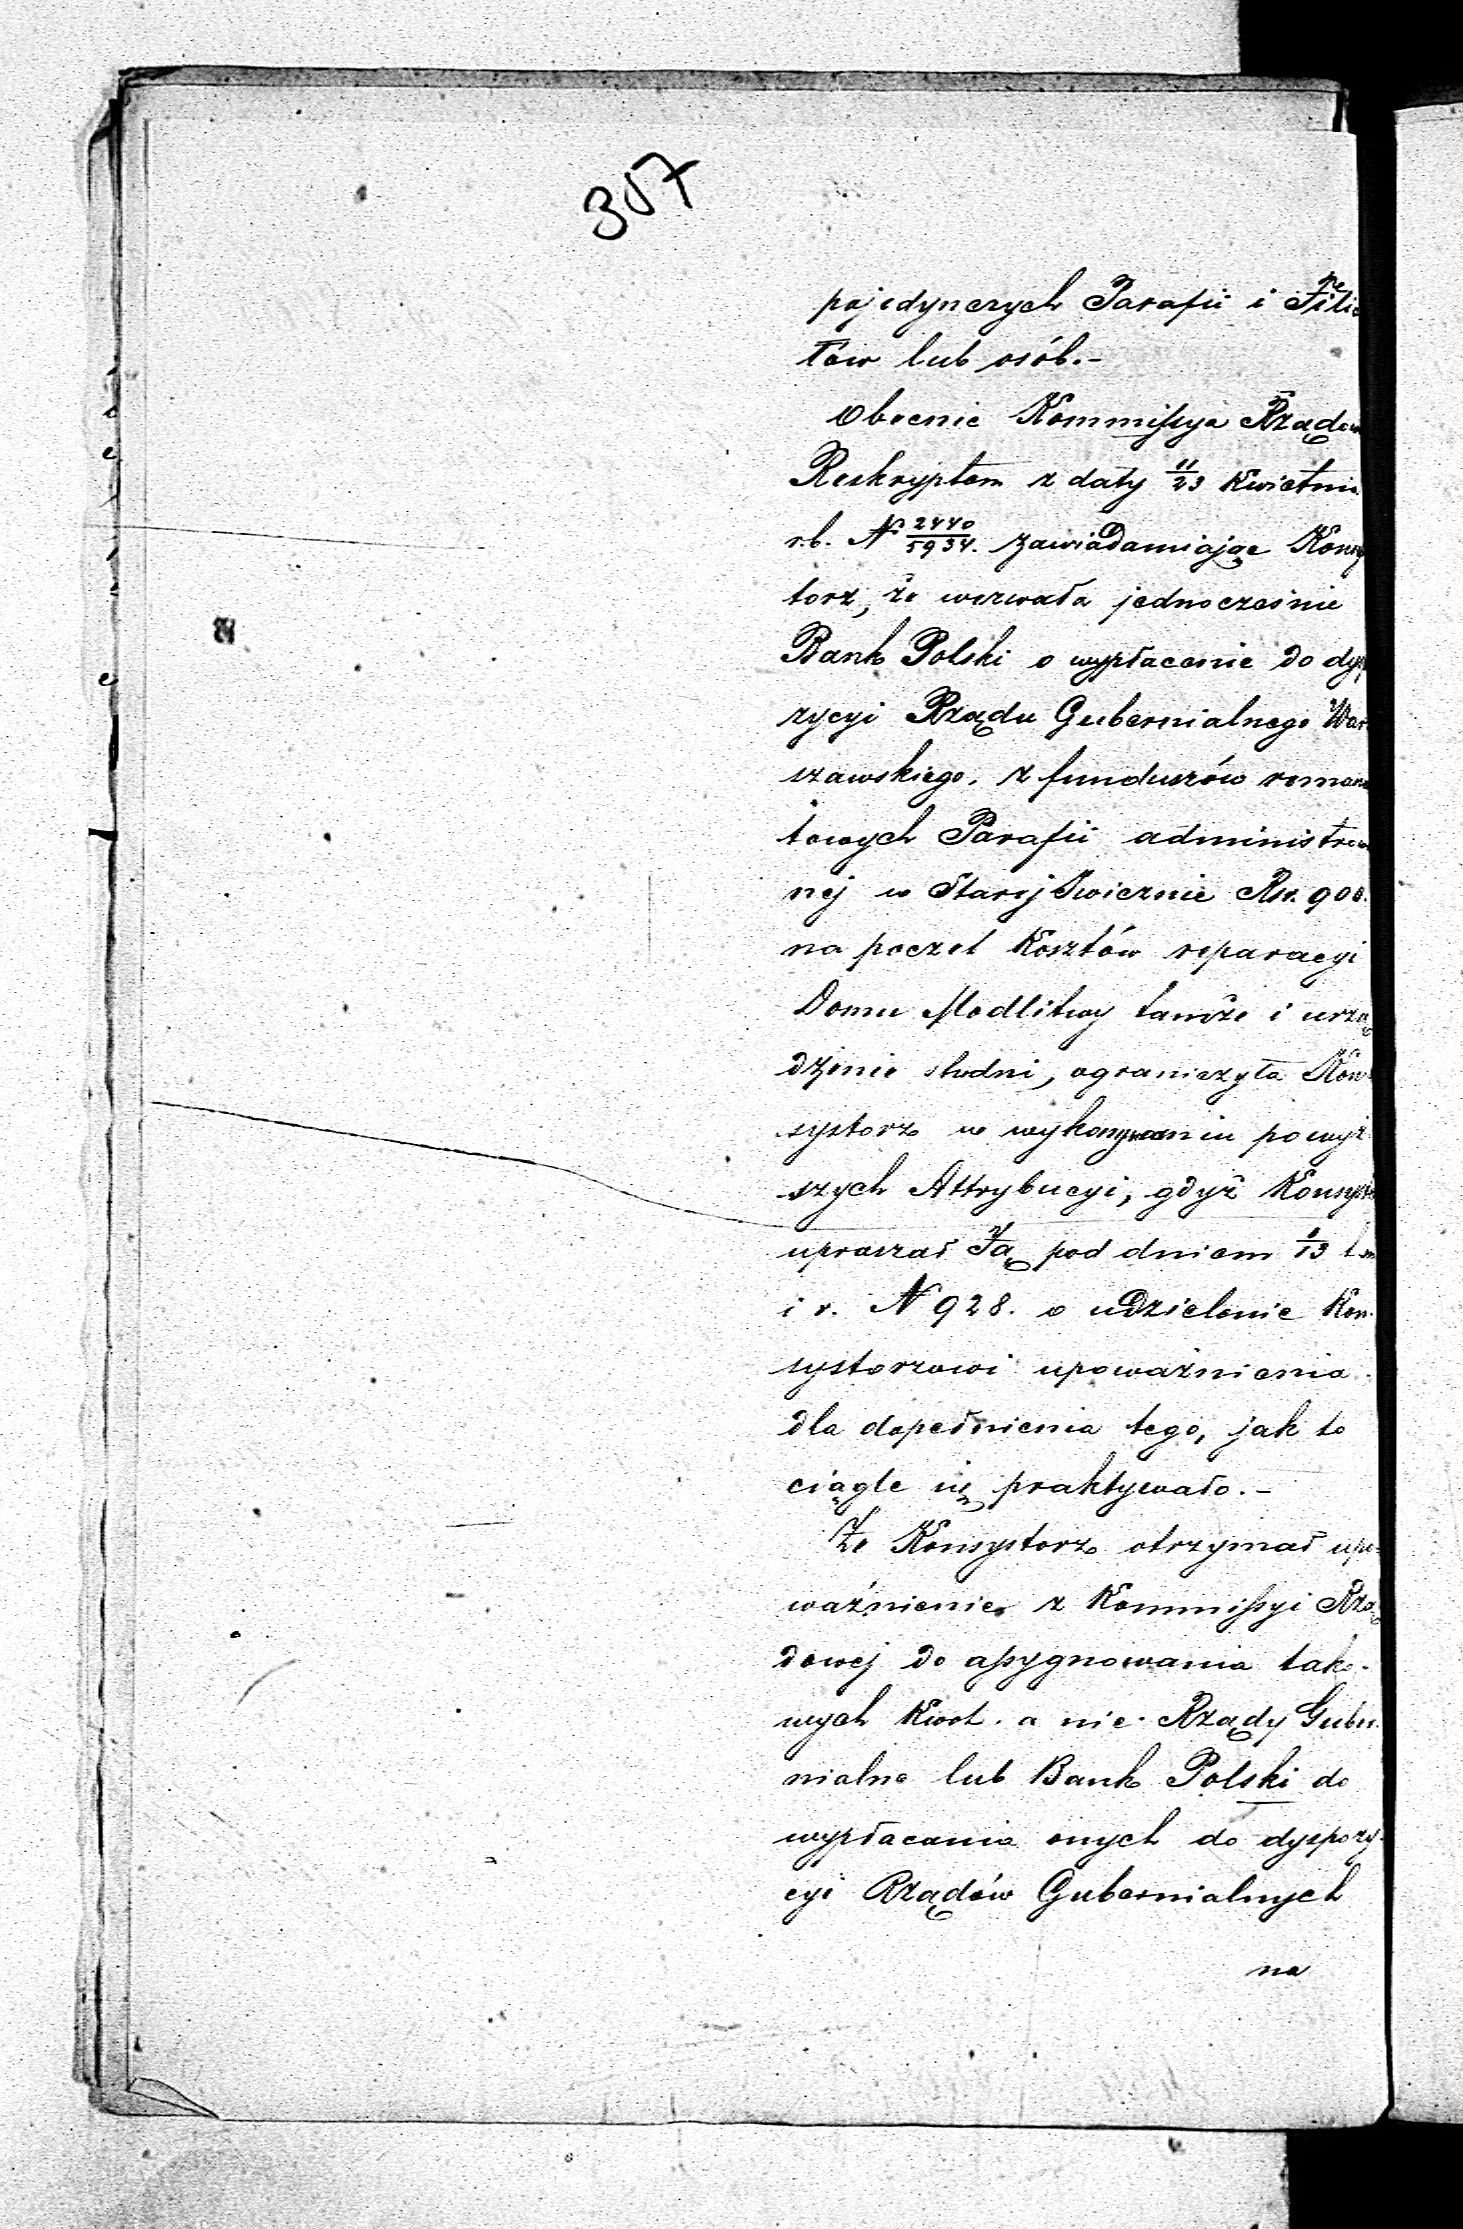 307
pojedynczych Parafii i Filia
łów lub osób.-
Obecnie Kommissya Rządow
Reskryptem z daty 11/23 Kwietnia
r.b. N 2440/5934. zawiadamiając Konsy
torz, że wezwała jednocześnie
Bank Polski o wypłacenie do dys
zycyi Rządu Gubernialnego War
szawskiego, z funduszów remane
towych Parafii administrow
nej w Starej Iwicznie Rsr. 900.
na poczet Kosztów reparacyi
Domu Modlitwy tamże i urzą
dzenie studni, ograniczyła Kon
systorz w wykonywaniu powyż
szych Attrybucyi, gdyż Konsyst
upraszał Ją pod dniem 1/13 t.m
i r. N 928. o udzielenie Kon-
systorzowi upoważnienia
dla dopełnienia tego, jak to
ciągle się praktywało.-
Że Konsystorz otrzymał upo-
ważnienie z Kommissyi Rzą
dowej do assygnowania tako-
wych Kwot. a nie Rządy Guber
nialne lub Bank Polski do
wypłacania onych do dyspozy-
cyi Rządów Gubernialnych
na